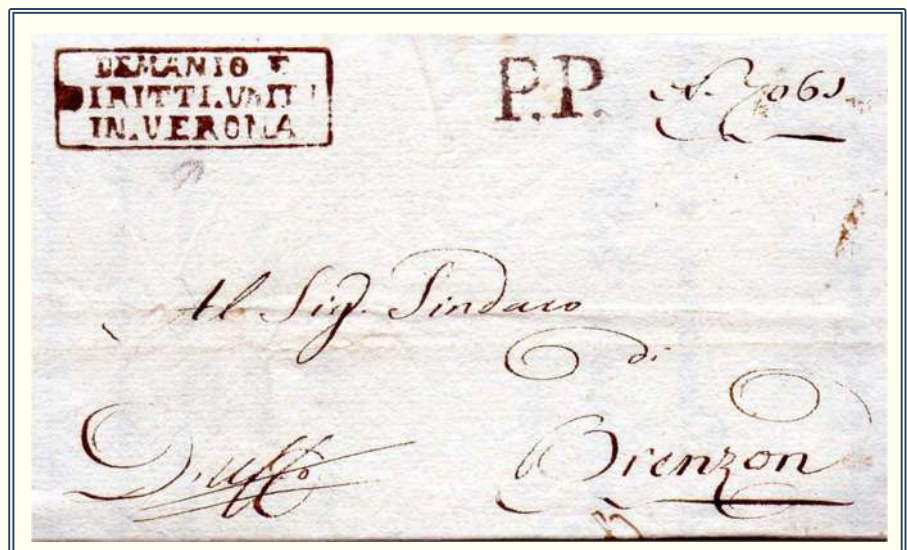 DEMANIO E
DIRITTI.UNITI
IN.VERONA
P.P.
Al Sig. Sindaco
di
Brenzon
D'uffo